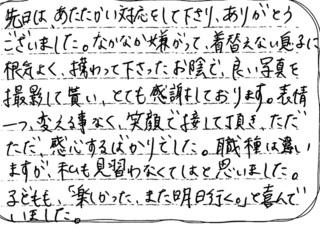 先日は、あたたかい対応をして下さり、ありがとう
ございました。なかなか嫌がって、着替えない息子に
根気よく、携わって下さったお陰で、良い写真を
撮影して貰い、とても感謝しております。表情
一つ、変える事なく、笑顔で接して頂き、ただ
ただ、感心するばかりでした。職種は違い
ますが、私も見習わなくてはと思いました。
子どもも、「楽しかった、また明日行く。」と喜んで
いました。